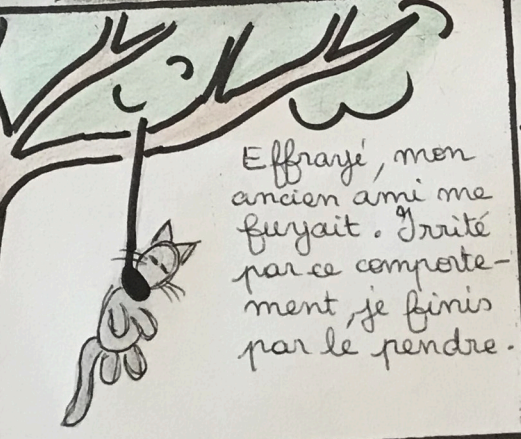 Effrayé, mon
ancien ami me
fuyait. Irrité
par ce comporte-
ment, je finis
par le pendre.